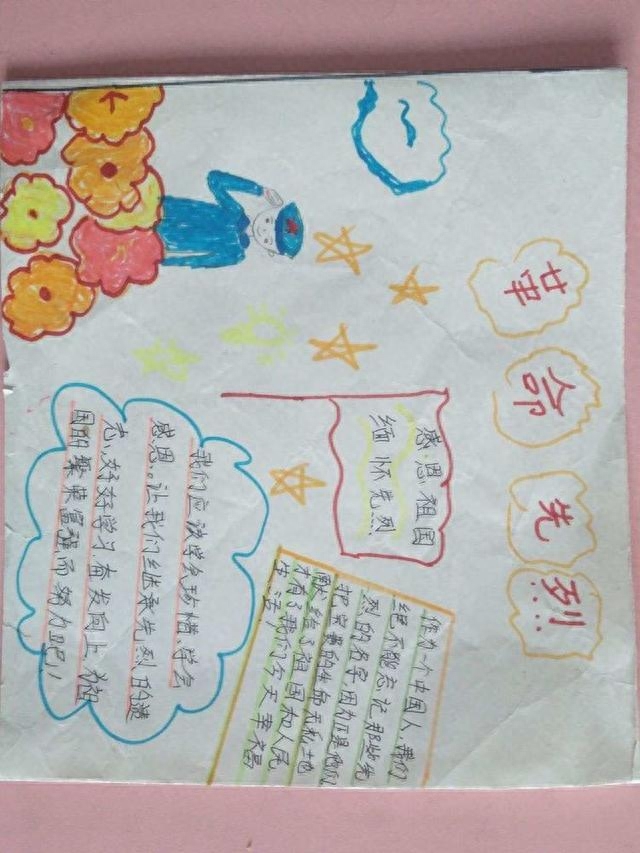 革命先烈...
感恩祖国
缅怀先烈
作为一个中国人,我们
绝不能忘记那些先
烈的名字,因为正是他们
把宝贵的生命无私地
献给了祖国和人民
才有了我们今天幸
生活
我们应该学会珍惜、学会
感恩..让我们继承先烈的遗
志,好好学习奋发向上为祖
国的繁荣富强而努力吧!!